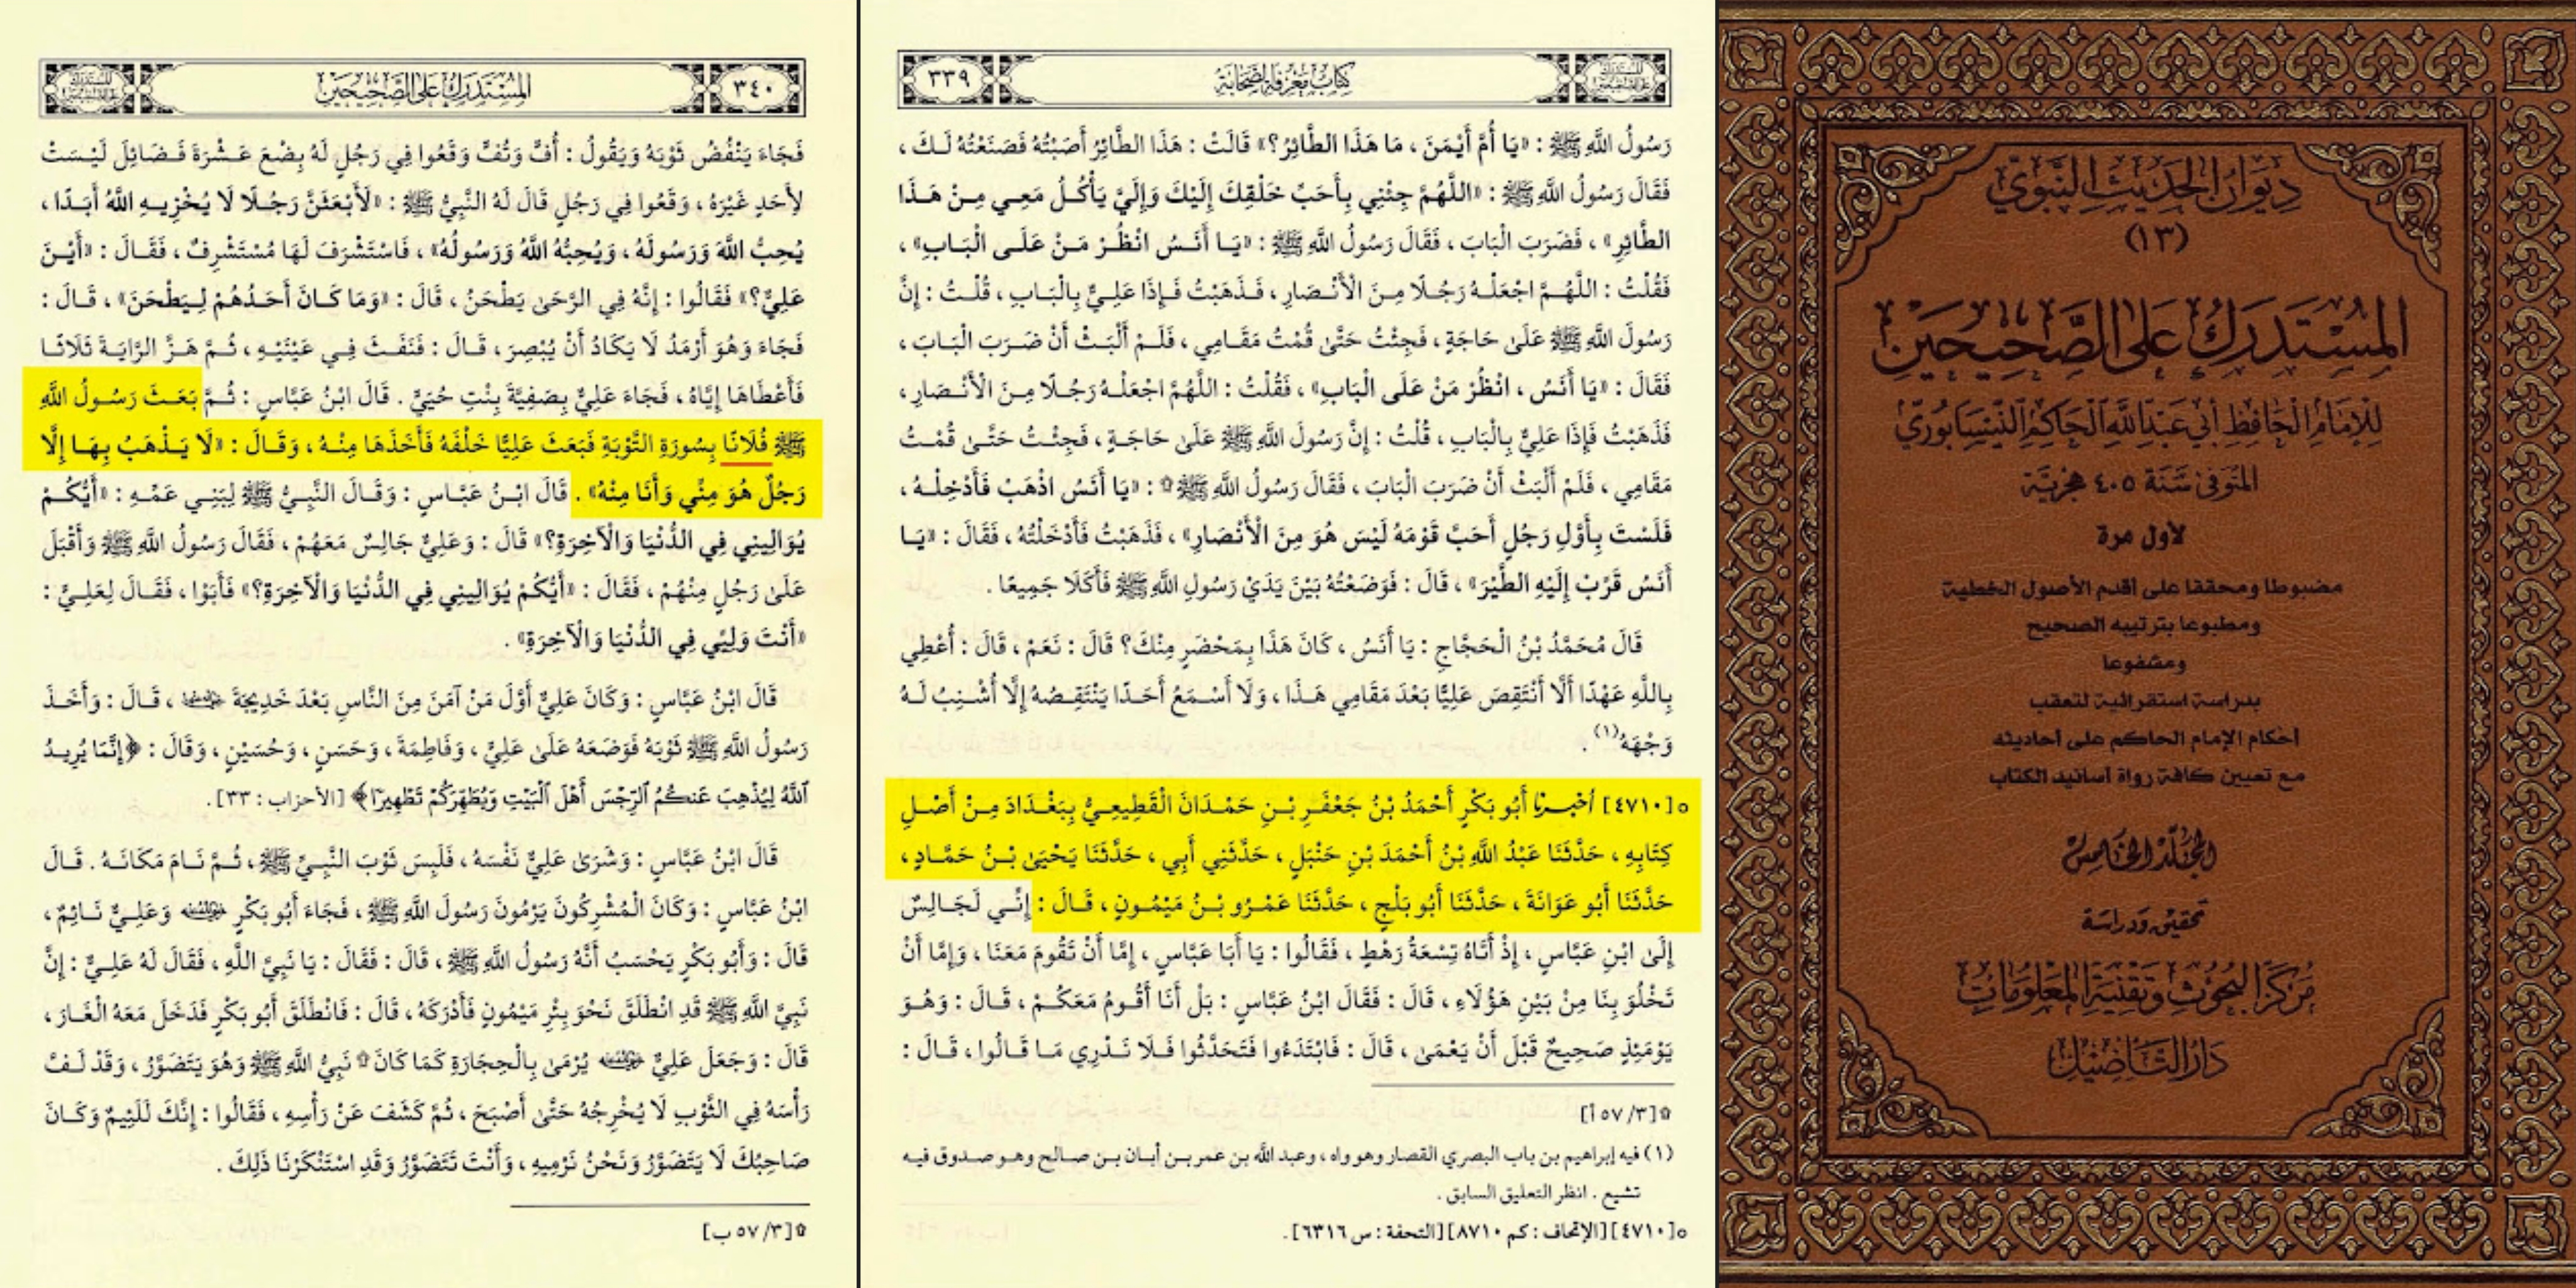 كتاب معرفة الصحابة
٣٣٩
رَسُولُ اللَّهِ ﷺ : «يَا أُمَّ أَيْمَنَ ، مَا هَذَا الطَّائِرُ؟» قَالَتْ : هَذَا الطَّائِرُ أَصَبْتُهُ فَصَنَعْتُهُ لَكَ ،
فَقَالَ رَسُولُ اللَّهِ ﷺ : «اللَّهُمَّ جِئْنِي بِأَحَبِّ خَلْقِكَ إِلَيْكَ وَإِلَيَّ يَأْكُلُ مَعِي مِنْ هَذَا
الطَّائِرِ» ، فَضَرَبَ الْبَابَ ، فَقَالَ رَسُولُ اللَّهِ ﷺ : «يَا أَنَسُ انْظُرْ مَنْ عَلَى الْبَابِ» ،
فَقُلْتُ : اللَّهُمَّ اجْعَلْهُ رَجُلًا مِنَ الْأَنْصَارِ ، فَذَهَبْتُ فَإِذَا عَلِيٌّ بِالْبَابِ ، قُلْتُ : إِنَّ
رَسُولَ اللَّهِ ﷺ عَلَى حَاجَةٍ ، فَجِئْتُ حَتَّى قُمْتُ مَقَامِي ، فَلَمْ أَلْبَثْ أَنْ ضَرَبَ الْبَابَ ،
فَقَالَ : «يَا أَنَسُ ، انْظُرْ مَنْ عَلَى الْبَابِ» ، فَقُلْتُ : اللَّهُمَّ اجْعَلْهُ رَجُلًا مِنَ الْأَنْصَارِ ،
فَذَهَبْتُ فَإِذَا عَلِيٌّ بِالْبَابِ ، قُلْتُ : إِنَّ رَسُولَ اللَّهِ ﷺ عَلَى حَاجَةٍ ، فَجِئْتُ حَتَّى قُمْتُ
مَقَامِي ، فَلَمْ أَلْبَثْ أَنْ ضَرَبَ الْبَابَ ، فَقَالَ رَسُولُ اللَّهِ ﷺ۩ : «يَا أَنَسُ اذْهَبْ فَأَدْخِلْهُ ،
فَلَسْتَ بِأَوَّلِ رَجُلٍ أَحَبَّ قَوْمَهُ لَيْسَ هُوَ مِنَ الْأَنْصَارِ» ، فَذَهَبْتُ فَأَدْخَلْتُهُ ، فَقَالَ : «يَا
أَنَسُ قَرِّبْ إِلَيْهِ الطَّيْرَ» ، قَالَ : فَوَضَعْتُهُ بَيْنَ يَدَيْ رَسُولِ اللَّهِ ﷺ فَأَكَلَا جَمِيعًا .
قَالَ مُحَمَّدُ بْنُ الْحَجَّاجِ : يَا أَنَسُ ، كَانَ هَذَا بِمَحْضَرٍ مِنْكَ؟ قَالَ : نَعَمْ ، قَالَ : أُعْطِي
بِاللَّهِ عَهْدًا أَلَّا أَنْتَقِصَ عَلِيًّا بَعْدَ مَقَامِي هَذَا ، وَلَا أَسْمَعُ أَحَدًا يَنْتَقِصُهُ إِلَّا أُشْنِبُ لَهُ
وَجْهَهُ(١) .
٥[٤٧١٠] أخبرنا أَبُو بَكْرٍ أَحْمَدُ بْنُ جَعْفَرِ بْنِ حَمْدَانَ الْقَطِيعِيُّ بِبَغْدَادَ مِنْ أَصْلِ
كِتَابِهِ ، حَدَّثَنَا عَبْدُ اللَّهِ بْنُ أَحْمَدَ بْنِ حَنْبَلٍ ، حَدَّثَنِي أَبِي ، حَدَّثَنَا يَحْيَى بْنُ حَمَّادٍ ،
حَدَّثَنَا أَبُو عَوَانَةَ ، حَدَّثَنَا أَبُو بَلْجٍ ، حَدَّثَنَا عَمْرُو بْنُ مَيْمُونٍ ، قَالَ : إِنِّي لَجَالِسٌ
إِلَى ابْنِ عَبَّاسٍ ، إِذْ أَتَاهُ تِسْعَةُ رَهْطٍ ، فَقَالُوا : يَا أَبَا عَبَّاسٍ ، إِمَّا أَنْ تَقُومَ مَعَنَا ، وَإِمَّا أَنْ
تَخْلُوَ بِنَا مِنْ بَيْنِ هَؤُلَاءِ ، قَالَ : فَقَالَ ابْنُ عَبَّاسٍ : بَلْ أَنَا أَقُومُ مَعَكُمْ ، قَالَ : وَهُوَ
يَوْمَئِذٍ صَحِيحٌ قَبْلَ أَنْ يَعْمَى ، قَالَ : فَابْتَدَءُوا فَتَحَدَّثُوا فَلَا نَدْرِي مَا قَالُوا ، قَالَ :
۩[٣/ ٥٧ أ]
(١) فيه إبراهيم بن باب البصري القصار وهو واه ، وعبد الله بن عمر بن أبان بن صالح وهو صدوق فيه
تشيع . انظر التعليق السابق .
٥[٤٧١٠] [الإتحاف : كم ٨٧١٠] [التحفة : س ٦٣١٦] .
٣٤٠
المستدرك على الصحيحين
فَجَاءَ يَنْفُضُ ثَوْبَهُ وَيَقُولُ : أُفٍّ وَتُفٍّ وَقَعُوا فِي رَجُلٍ لَهُ بِضْعَ عَشْرَةَ فَضَائِلَ لَيْسَتْ
لِأَحَدٍ غَيْرَهُ ، وَقَعُوا فِي رَجُلٍ قَالَ لَهُ النَّبِيُّ ﷺ : «لَأَبْعَثَنَّ رَجُلًا لَا يُخْزِيهِ اللَّهُ أَبَدًا ،
يُحِبُّ اللَّهَ وَرَسُولَهُ ، وَيُحِبُّهُ اللَّهُ وَرَسُولُهُ» ، فَاسْتَشْرَفَ لَهَا مُسْتَشْرِفٌ ، فَقَالَ : «أَيْنَ
عَلِيٌّ؟» فَقَالُوا : إِنَّهُ فِي الرَّحَى يَطْحَنُ ، قَالَ : «وَمَا كَانَ أَحَدُهُمْ لِيَطْحَنَ» ، قَالَ :
فَجَاءَ وَهُوَ أَرْمَدُ لَا يَكَادُ أَنْ يُبْصِرَ ، قَالَ : فَنَفَثَ فِي عَيْنَيْهِ ، ثُمَّ هَزَّ الرَّايَةَ ثَلَاثًا
فَأَعْطَاهَا إِيَّاهُ ، فَجَاءَ عَلِيٌّ بِصَفِيَّةَ بِنْتِ حُيَيٍّ . قَالَ ابْنُ عَبَّاسٍ : ثُمَّ بَعَثَ رَسُولُ اللَّهِ
ﷺ فُلَانًا بِسُورَةِ التَّوْبَةِ فَبَعَثَ عَلِيًّا خَلْفَهُ فَأَخَذَهَا مِنْهُ ، وَقَالَ : «لَا يَذْهَبُ بِهَا إِلَّا
رَجُلٌ هُوَ مِنِّي وَأَنَا مِنْهُ» . قَالَ ابْنُ عَبَّاسٍ : وَقَالَ النَّبِيُّ ﷺ لِبَنِي عَمِّهِ : «أَيُّكُمْ
يُوَالِينِي فِي الدُّنْيَا وَالْآخِرَةِ؟» قَالَ : وَعَلِيٌّ جَالِسٌ مَعَهُمْ ، فَقَالَ رَسُولُ اللَّهِ ﷺ وَأَقْبَلَ
عَلَى رَجُلٍ مِنْهُمْ ، فَقَالَ : «أَيُّكُمْ يُوَالِينِي فِي الدُّنْيَا وَالْآخِرَةِ؟» فَأَبَوْا ، فَقَالَ لِعَلِيٍّ :
«أَنْتَ وَلِيِّي فِي الدُّنْيَا وَالْآخِرَةِ» .
قَالَ ابْنُ عَبَّاسٍ : وَكَانَ عَلِيٌّ أَوَّلَ مَنْ آمَنَ مِنَ النَّاسِ بَعْدَ خَدِيجَةَ ، قَالَ : وَأَخَذَ
رَسُولُ اللَّهِ ﷺ ثَوْبَهُ فَوَضَعَهُ عَلَى عَلِيٍّ ، وَفَاطِمَةَ ، وَحَسَنٍ ، وَحُسَيْنٍ ، وَقَالَ : ﴿إِنَّمَا يُرِيدُ
ٱللَّهُ لِيُذْهِبَ عَنكُمُ ٱلرِّجْسَ أَهْلَ ٱلْبَيْتِ وَيُطَهِّرَكُمْ تَطْهِيرًا﴾ [الأحزاب : ٣٣] .
قَالَ ابْنُ عَبَّاسٍ : وَشَرَى عَلِيٌّ نَفْسَهُ ، فَلَبِسَ ثَوْبَ النَّبِيِّ ﷺ ، ثُمَّ نَامَ مَكَانَهُ . قَالَ
ابْنُ عَبَّاسٍ : وَكَانَ الْمُشْرِكُونَ يَرْمُونَ رَسُولَ اللَّهِ ﷺ ، فَجَاءَ أَبُو بَكْرٍ وَعَلِيٌّ نَائِمٌ ،
قَالَ : وَأَبُو بَكْرٍ يَحْسَبُ أَنَّهُ رَسُولُ اللَّهِ ﷺ ، قَالَ : فَقَالَ : يَا نَبِيَّ اللَّهِ ، فَقَالَ لَهُ عَلِيٌّ : إِنَّ
نَبِيَّ اللَّهِ ﷺ قَدِ انْطَلَقَ نَحْوَ بِئْرِ مَيْمُونٍ فَأَدْرَكَهُ ، قَالَ : فَانْطَلَقَ أَبُو بَكْرٍ فَدَخَلَ مَعَهُ الْغَارَ ،
قَالَ : وَجَعَلَ عَلِيٌّ يُرْمَى بِالْحِجَارَةِ كَمَا كَانَ۩ نَبِيُّ اللَّهِ ﷺ وَهُوَ يَتَضَوَّرُ ، وَقَدْ لَفَّ
رَأْسَهُ فِي الثَّوْبِ لَا يُخْرِجُهُ حَتَّى أَصْبَحَ ، ثُمَّ كَشَفَ عَنْ رَأْسِهِ ، فَقَالُوا : إِنَّكَ لَلَئِيمٌ وَكَانَ
صَاحِبُكَ لَا يَتَضَوَّرُ وَنَحْنُ نَرْمِيهِ ، وَأَنْتَ تَتَضَوَّرُ وَقَدِ اسْتَنْكَرْنَا ذَلِكَ .
۩[٣/ ٥٧ ب]
ديوان الحديث النبوي
(١٣)
المستدرك على الصحيحين
للإمام الحافظ أبي عبد الله الحاكم النيسابوري
المتوفى سنة ٤٠٥ هجرية
لأول مرة
مضبوطا ومحققا على أقدم الأصول الخطية
ومطبوعا بترتيبه الصحيح
ومشفوعا
بدراسة استقرائية لتعقب
أحكام الإمام الحاكم على أحاديثه
مع تعيين كافة رواة أسانيد الكتاب
المجلد الخامس
تحقيق ودراسة
مركز البحوث وتقنية المعلومات
دار التأصيل